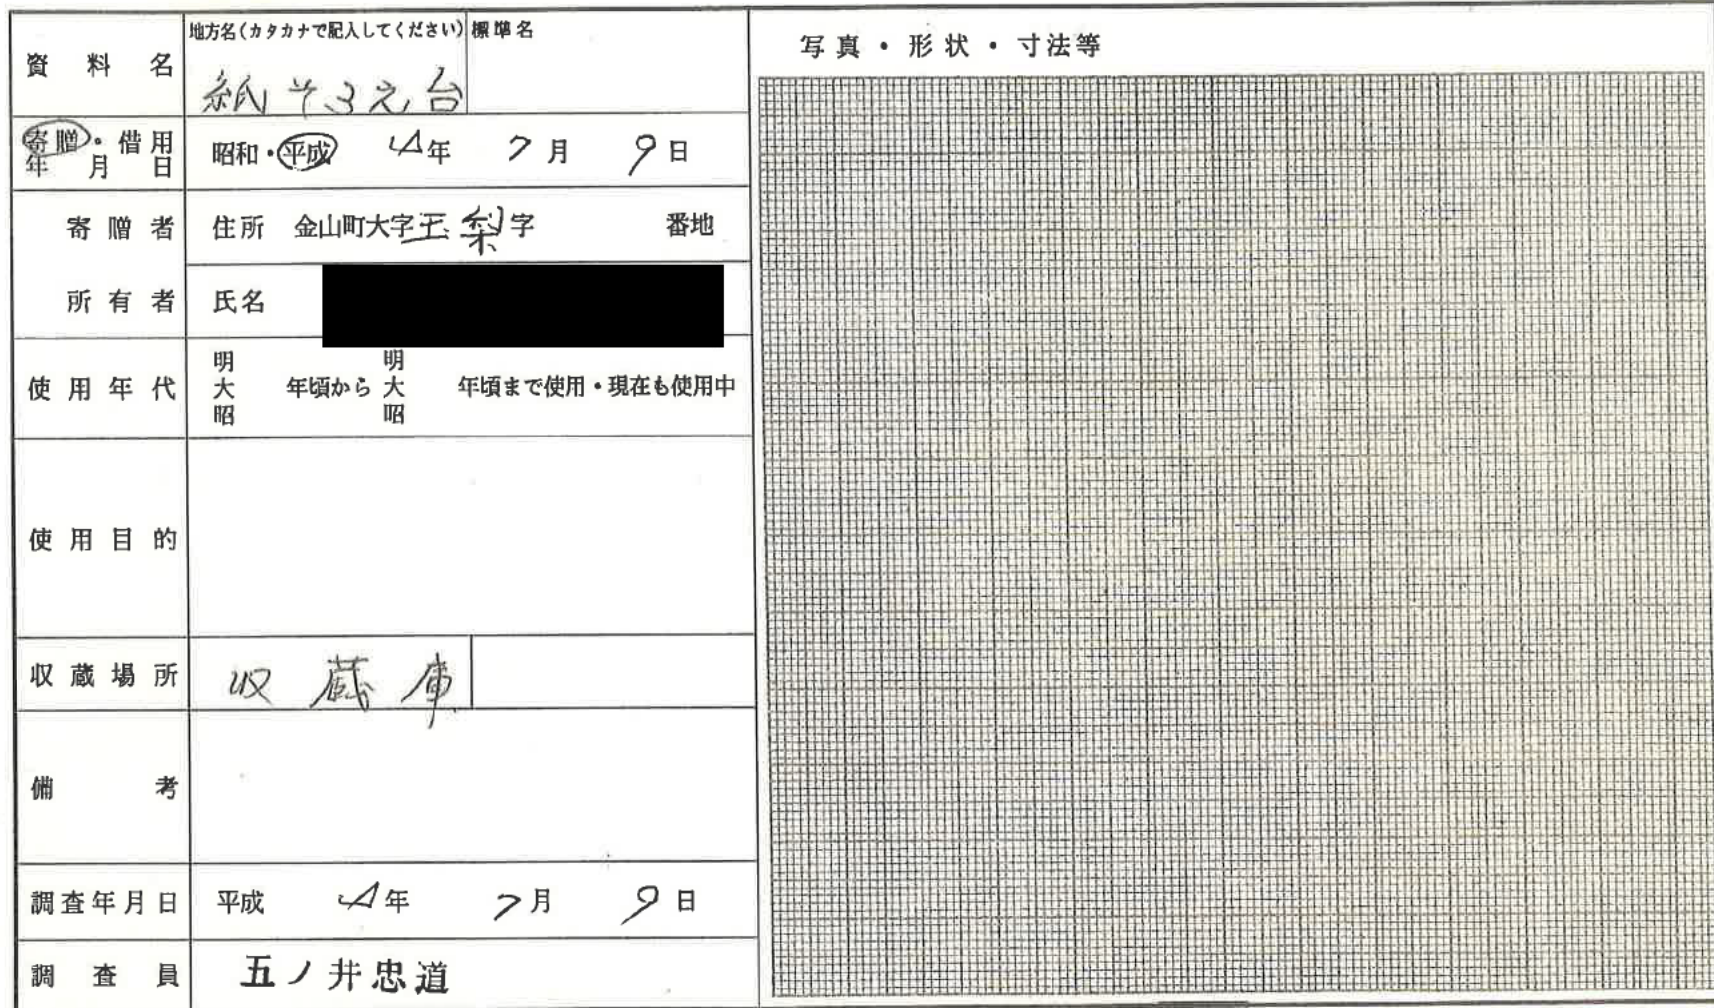 資料名
地方名(カタカナで記入してください)
標準名
紙そろえ台
寄贈・借用
年月日
昭和・平成 4年 7月 9日
寄贈者
住所 金山町大字玉梨字 番地
所有者
氏名
使用年代
明 明
大 年頃から 大 年頃まで使用・現在も使用中
昭 昭
使用目的
収蔵場所
収蔵庫
備考
調査年月日
平成 4年 7月 9日
調査員
五ノ井忠道
写真・形状・寸法等